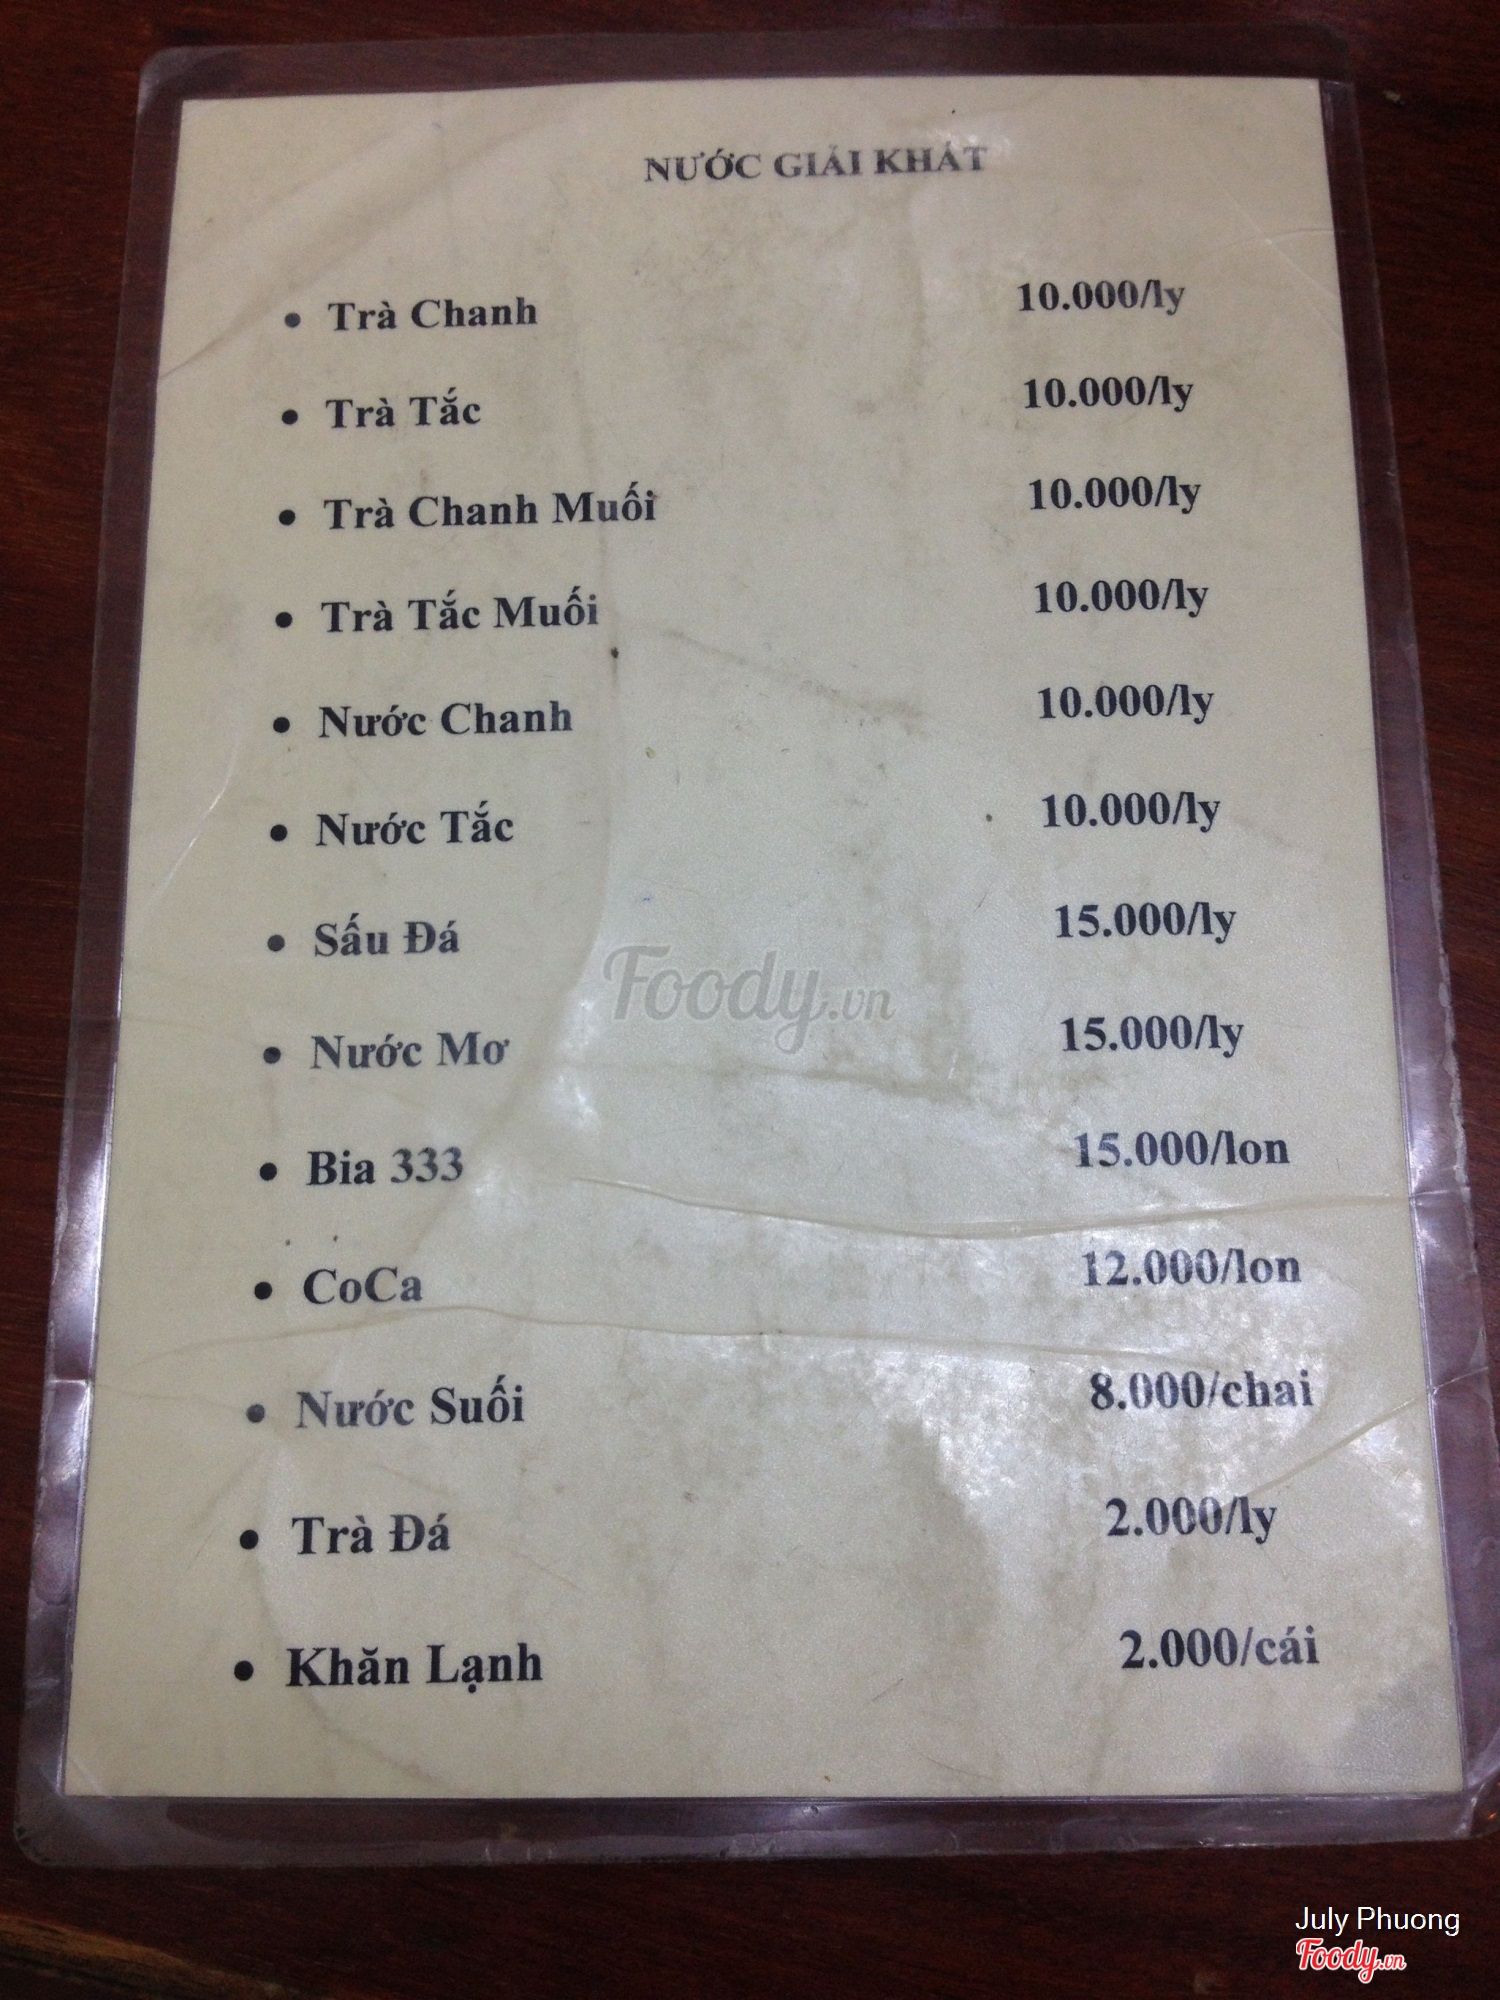 NƯỚC GIẢI KHÁT
• Trà Chanh 10.000/ly
• Trà Tắc 10.000/ly
• Trà Chanh Muối 10.000/ly
• Trà Tắc Muối 10.000/ly
• Nước Chanh 10.000/ly
• Nước Tắc 10.000/ly
• Sấu Đá 15.000/ly
Foody.vn
• Nước Mơ 15.000/ly
• Bia 333 15.000/lon
• CoCa 12.000/lon
• Nước Suối 8.000/chai
• Trà Đá 2.000/ly
• Khăn Lạnh 2.000/cái
July Phuong
Foody.vn